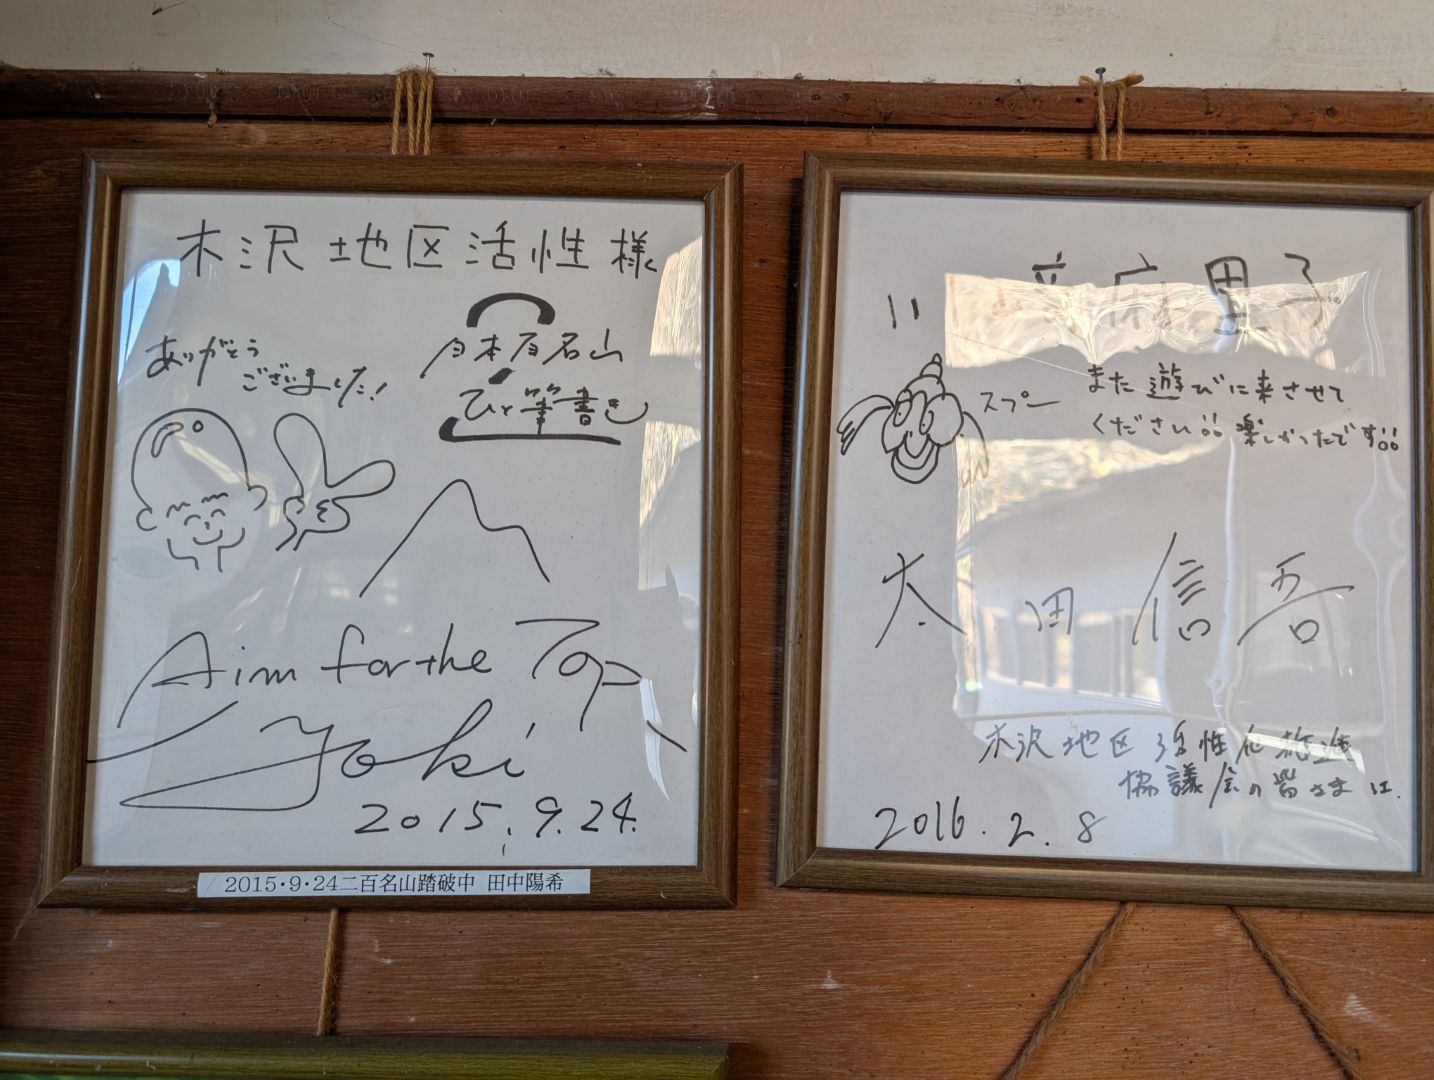 木沢地区活性様
ありがとう
ございました!
2
日本百名山
ひと筆書き
Aim for the Top
Yoki
2015.9.24.
2015・9・24二百名山踏破中 田中陽希
麻里子
スプー
また遊びに来させて
ください!! 楽しかったです!!
太田信吾
木沢地区活性化推進
協議会の皆さまに.
2016.2.8